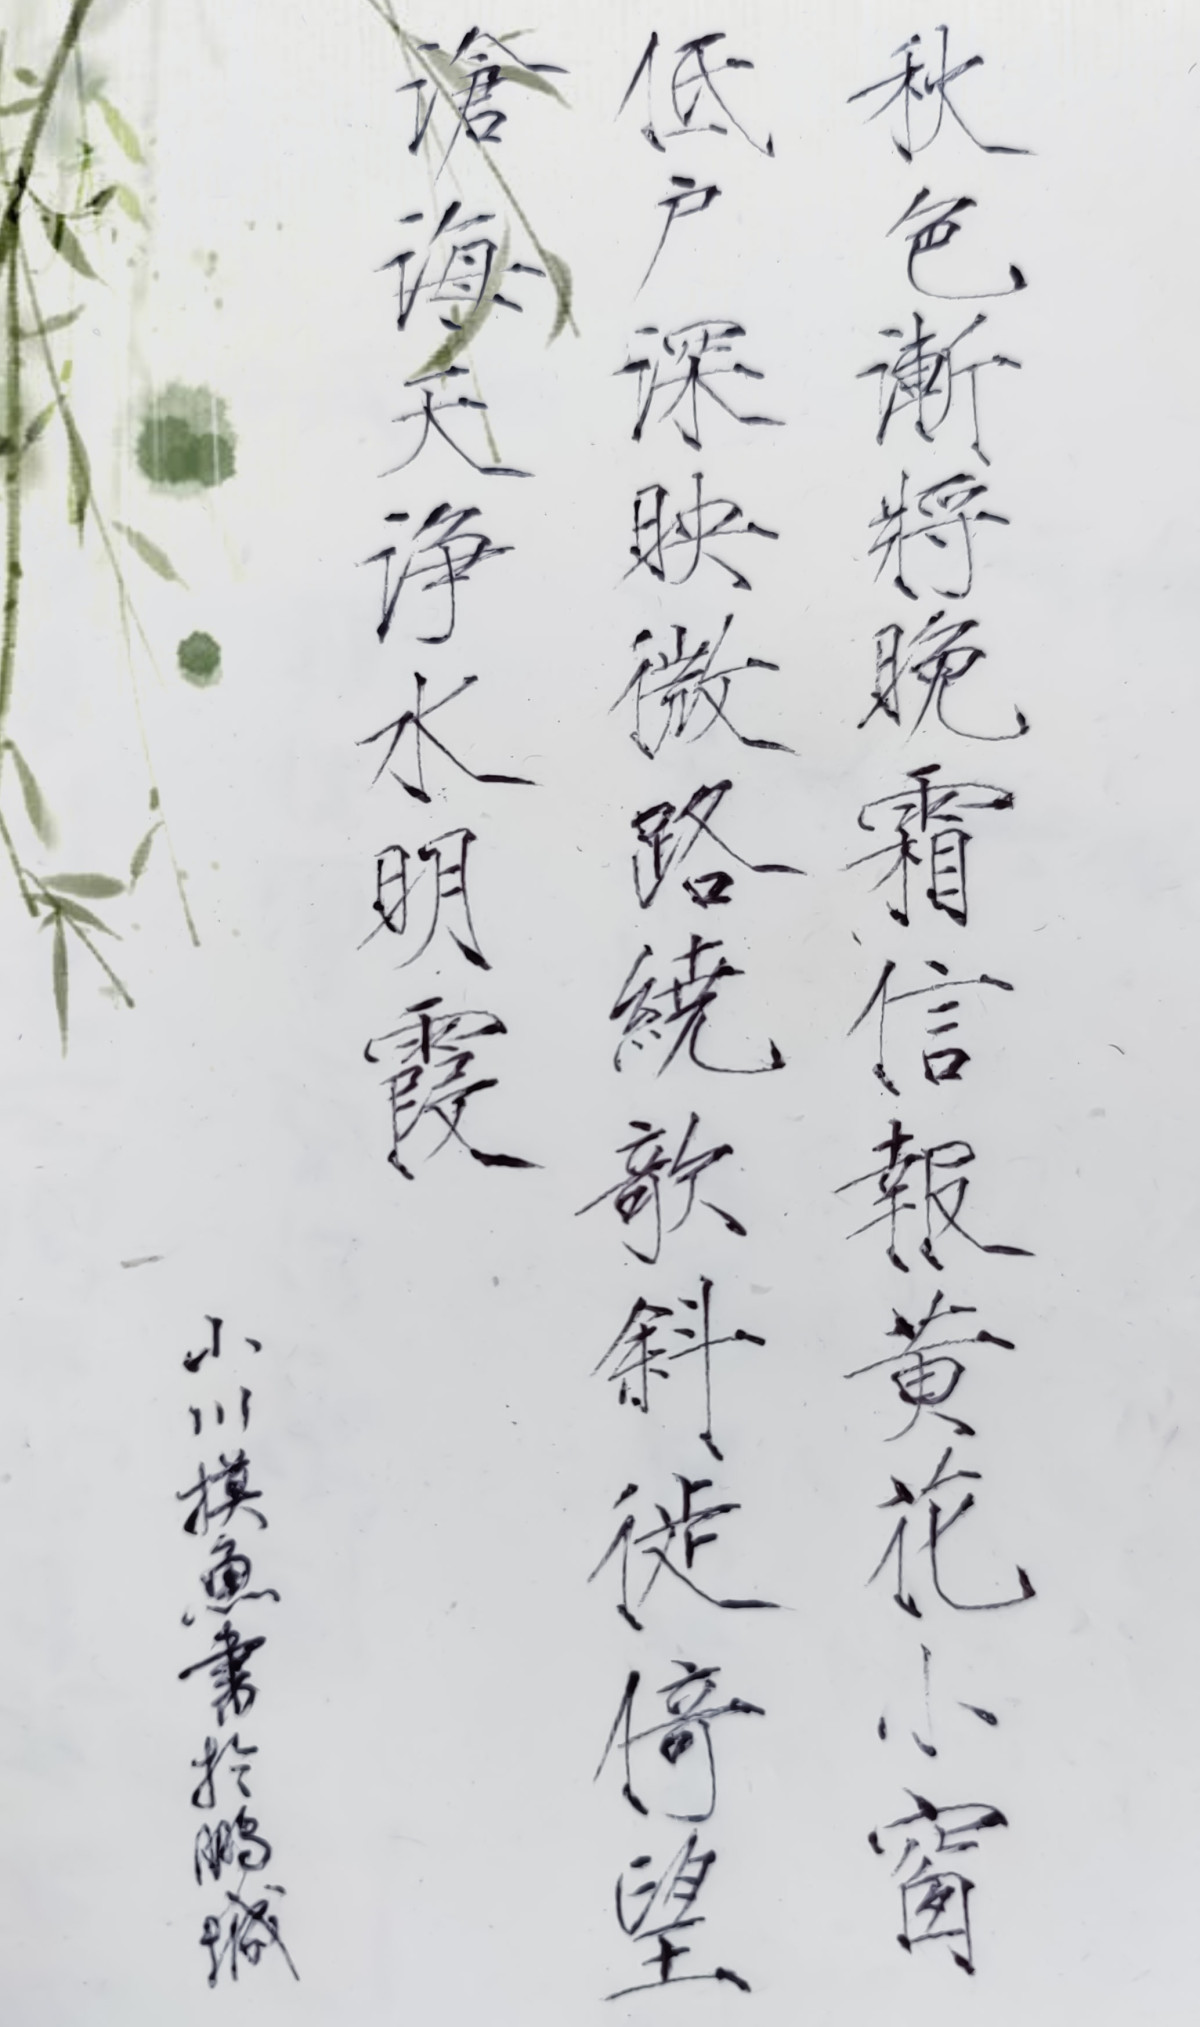 秋色漸將晚霜信報黄花小窗
低户深映微路繞欹斜徙倚望
滄海天淨水明霞
小川摸魚書於鵬城